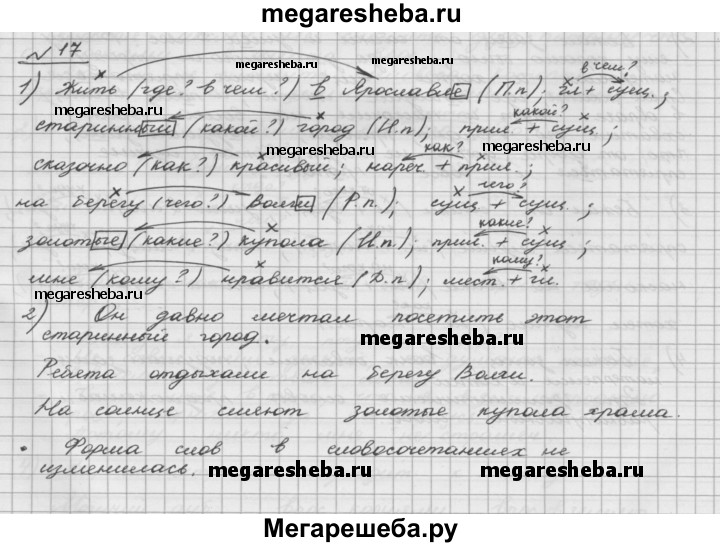 megaresheba.ru
№ 17
в чем?
1) Жить (где? в чем?) в Ярославле (П.п); гл + сущ.;
megaresheba.ru megaresheba.ru
какой?
старинный (какой?) город (И.п); прил. + сущ.;
как?
megaresheba.ru megaresheba.ru
сказочно (как?) красивый; нареч. + прил.;
чего?
на берегу (чего?) Волги (Р.п.); сущ. + сущ.;
какие?
золотые (какие?) купола (И.п); прил. + сущ.;
кому?
мне (кому?) нравится (Д.п); мест. + гл.
megaresheba.ru
2) Он давно мечтал посетить этот
старинный город.
megaresheba.ru
Ребята отдыхали на берегу Волги.
На солнце сияют золотые купола храма.
• Форма слов в словосочетаниях не
изменилась.
megaresheba.ru megaresheba.ru
Мегарешеба.ру